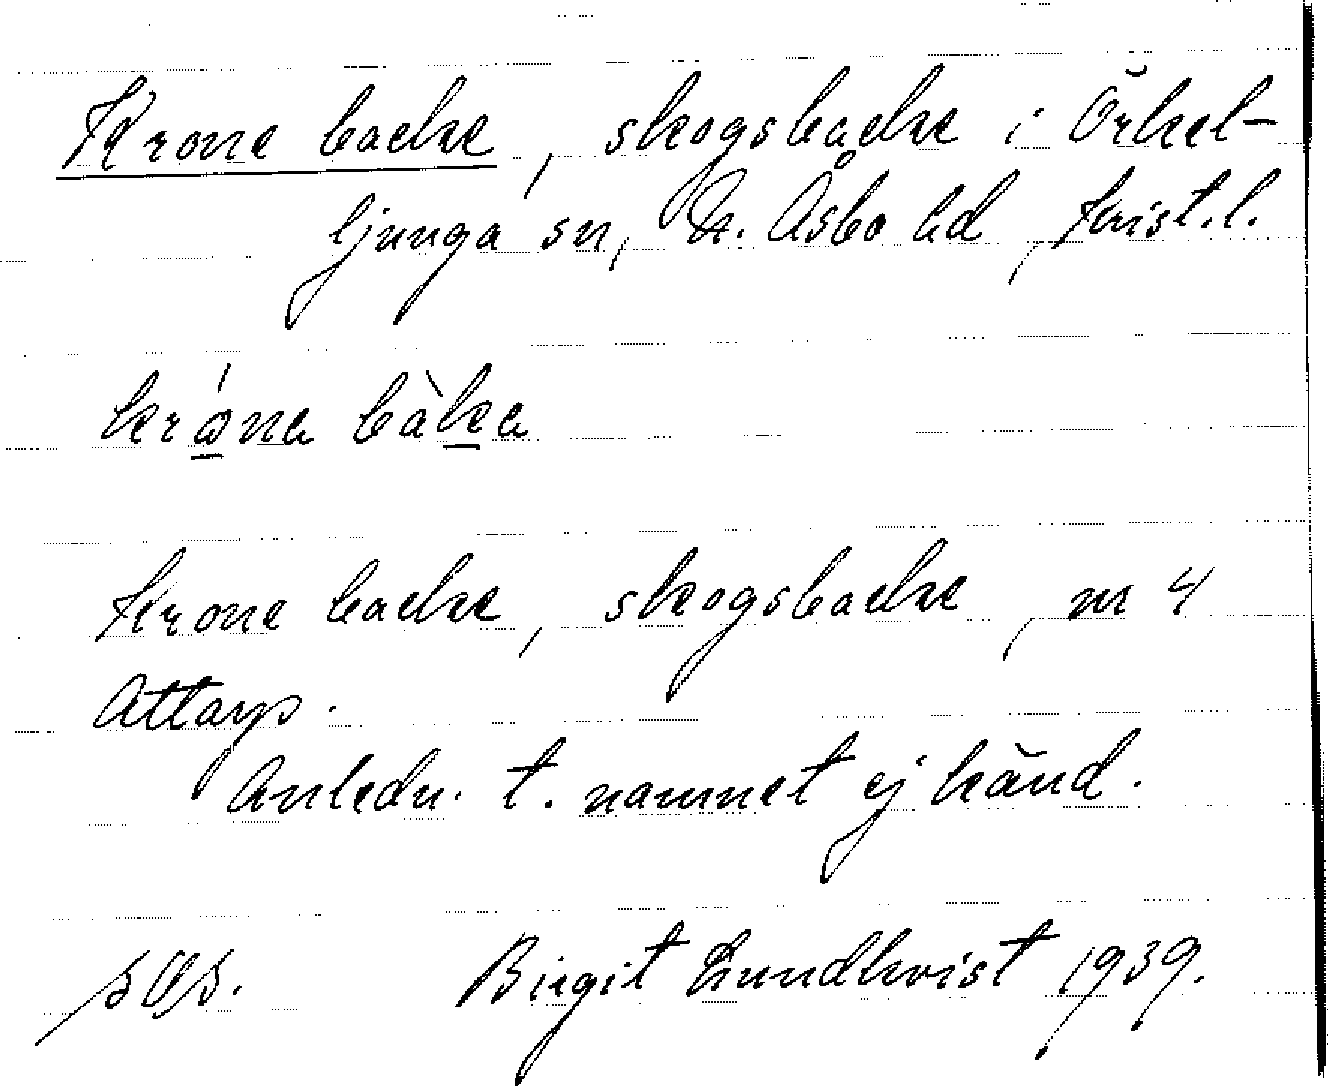 Krone backe, skogsbacke i Örkel-
ljunga sn, N. Åsbo hd, Krist. l.
króna bàka
Krone backe, skogsbacke, nr 4
Attarp.
Anledn. t. namnet ej känd.
Birgit Lundkvist 1939.